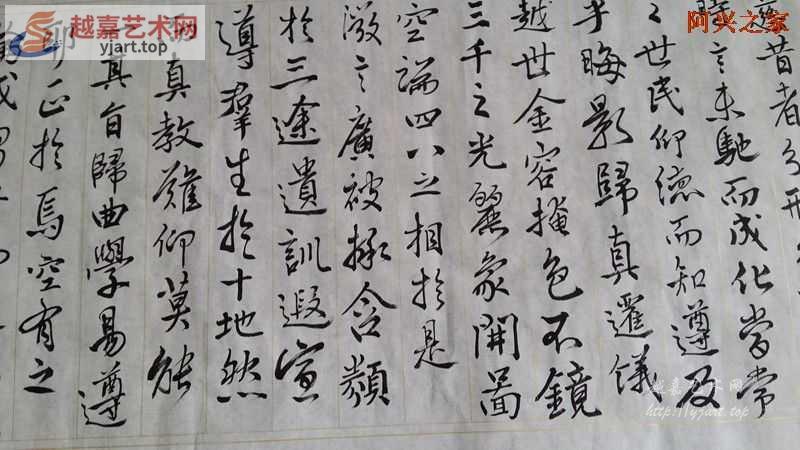 昔者分形
時言未馳而成化當常
之世民仰德而知遵及
乎晦影歸真遷儀
越世金容掩色不鏡
三千之光麗象開圖
空端四八之相於是
微言廣被拯含類
於三途遺訓遐宣
導羣生於十地然
真教難仰莫能
其旨歸曲學易遵
正於焉空有之
越嘉艺术网
yjart.top
阿兴之家
越嘉艺术网
http://yjart.top